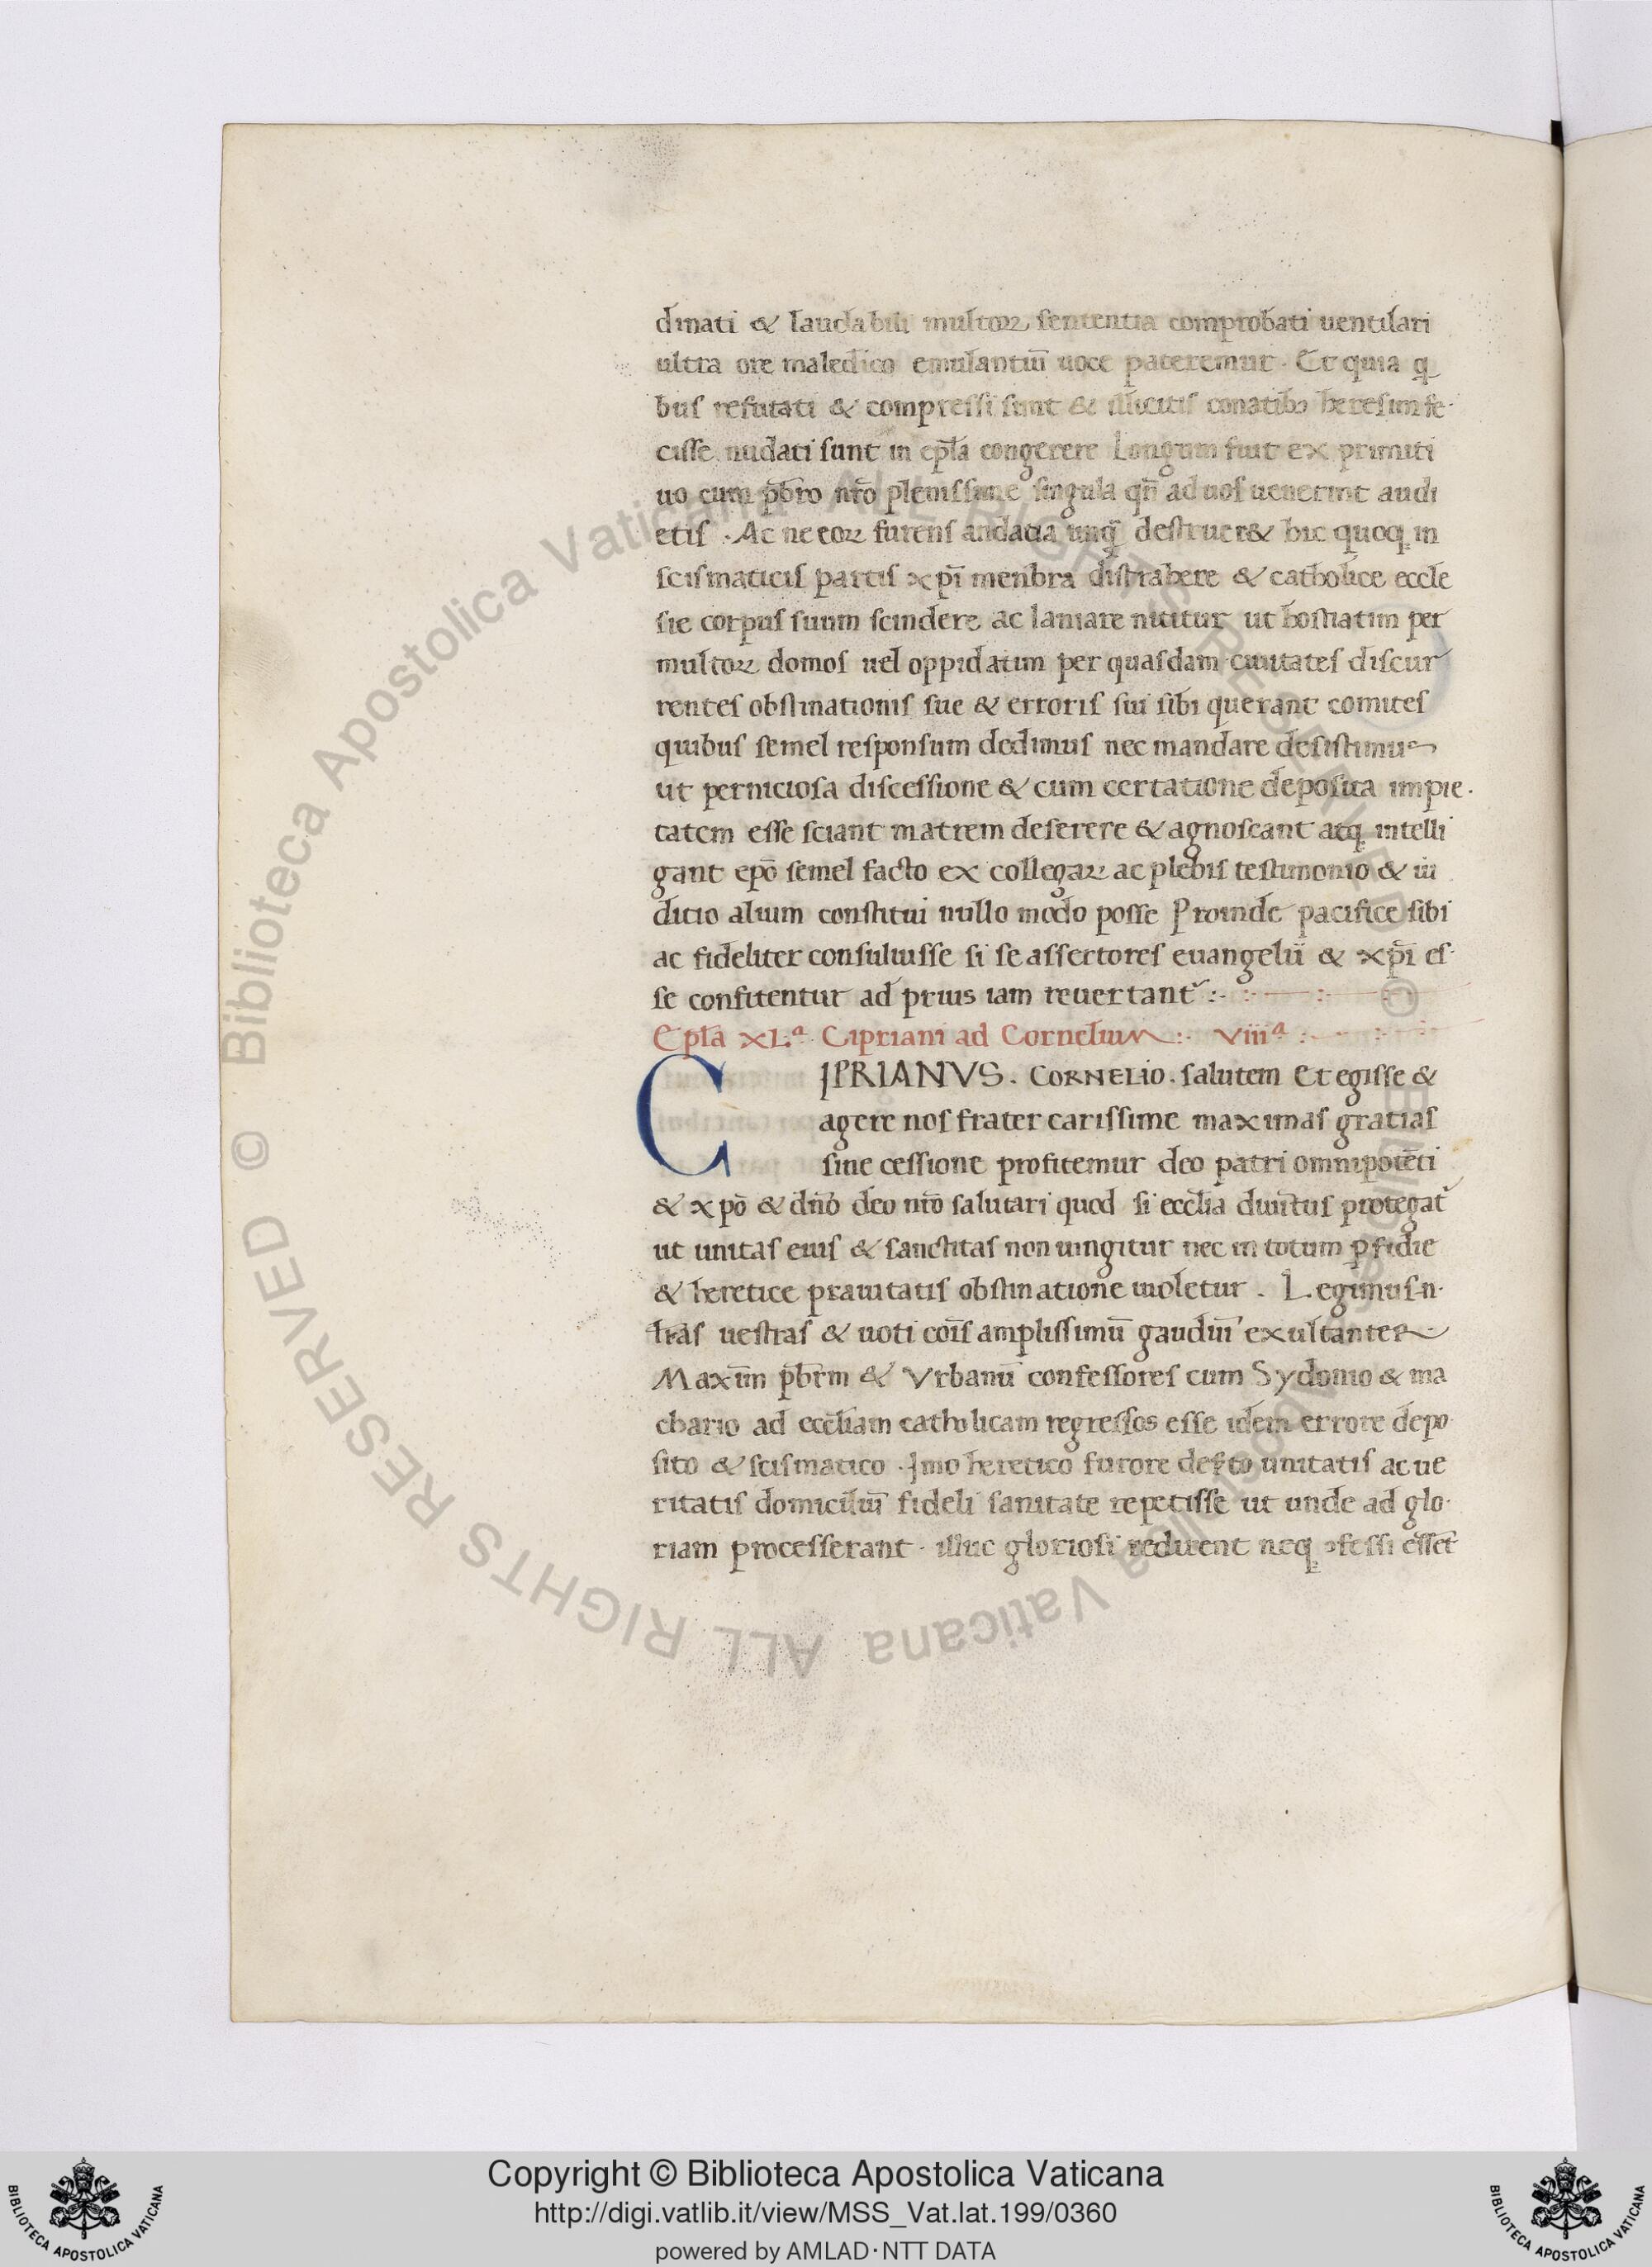 dinati & laudabili multoꝝ sententia comprobati uentilari
ultra ore maledico emulantiū uoce pateremur. Et quia q
bus refutati & compressi sunt & illicitis conatibꝫ heresim fe
cisse nudati sunt in ep̄la congerere Longum fuit ex primiti
uo cum p̄bro nr̄o plenissime singula qn̄ ad uos uenerint audi
etis. Ac ne eoꝝ furens audatia unq̄ destruer& hic quoqꝫ in
scismaticis partis xp̄i menbra distrahere & catholice eccl̄e
sie corpus suum scindere ac laniare nititur ut hostiatim per
multoꝝ domos uel oppidatim per quasdam ciuitates discur
rentes obstinationis sue & erroris sui sibi querant comites
quibus semel responsum dedimus nec mandare desistimus
ut perniciosa discessione & cum certatione deposita impie
tatem esse sciant matrem deserere & agnoscant atqꝫ intelli
gant ep̄o semel facto ex collegaꝝ ac plebis testimonio & iu
ditio alium constitui nullo modo posse Proinde pacifice sibi
ac fideliter consuluisse si se assertores euangelii & xp̄i es
se confitentur ad prius iam reuertant᷑ :· :—— :·
Ep̄la XL.ª Cipriani ad Cornelium :· Viiiª :·
CIPRIANVS. CORNELIO. salutem Et egisse &
agere nos frater carissime maximas gratias
sine cessione profitemur deo patri omnipotēti
& xp̄o & dn̄o deo nr̄o salutari quod si eccl̄ia diuītus protegat᷑
ut unitas eius & sanctitas non uingitur nec in totum ꝑfidie
& heretice prauitatis obstinatione uioletur. Legimus n.
l̄ras uestras & uoti cōis amplissimū gaudiū exultanter
Maxīm p̄brm & Vrbanū confessores cum Sydonio & ma
chario ad eccl̄iam catholicam regressos esse idem errore depo
sito & scismatico. Imo heretico furore def̄to unitatis ac ue
ritatis domiciliū fideli sanitate repetisse ut unde ad glo
riam processerant. illuc gloriosi redirent neqꝫ ꝯfessi ess̄et
© Biblioteca Apostolica Vaticana ALL RIGHTS RESERVED © Biblioteca Apostolica Vaticana ALL RIGHTS RESERVED
Copyright © Biblioteca Apostolica Vaticana
http://digi.vatlib.it/view/MSS_Vat.lat.199/0360
powered by AMLAD·NTT DATA
BIBLIOTECA APOSTOLICA VATICANA
BIBLIOTECA APOSTOLICA VATICANA